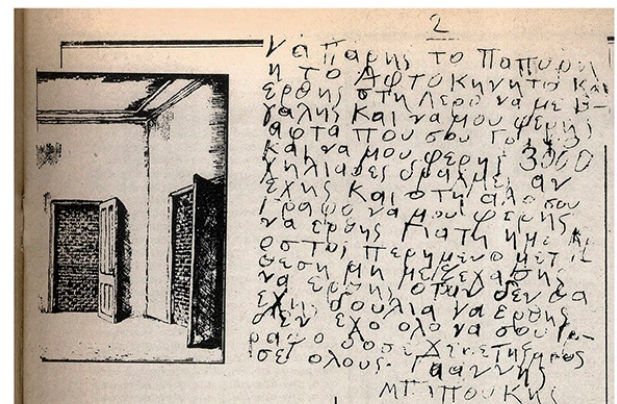 2
να παρης το παπορη
η το Αφτοκηνητο και
ερθης στη Λερο να με β-
γαλης και να μου φερης
αφτα που σου
και να μου φερης 3000
χηλιαδες δραχμες αν
εχης και οτη αλο σου
γραφο να μου φερης
να ερθης γιατη ημε Αρ
οστοι περημενο μετ
θεση μη με ξεχασης
να ερθης οταν δεν θα
εχης δουλια να ερθης
δεν εχο ολο να σου γ-
ραψο δοσε χερετησμους
σε ολους. Γιαννης
ΜΠΙΠΟΥΚΗΣ